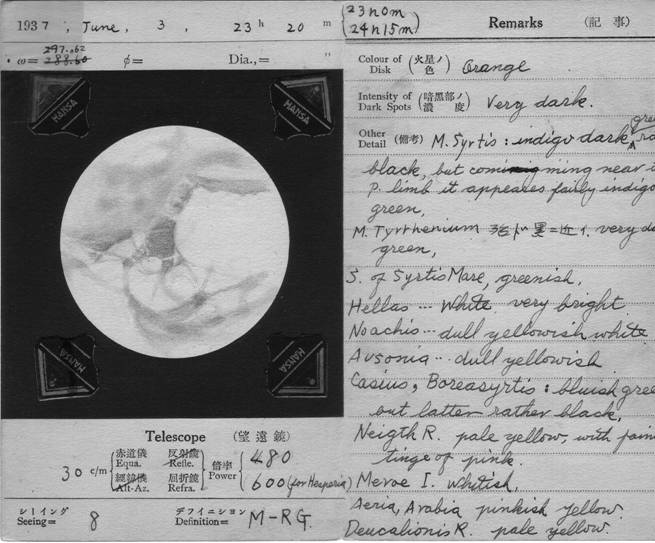 1937, June, 3, 23 h 20 m
ω= 297.62 288.60 ϕ= Dia.,= "
HANSA
HANSA
HANSA
HANSA
Telescope (望遠鏡)
30 c/m { 赤道儀 Equa. 經緯機 Alt-Az. { 反射鏡 Refle. 屈折鏡 Refra. } 倍率 Power { 480 600 (for Hesperia)
シーイング Seeing= 8 デフイニション Definition= M-RG.
(23h0m
24h15m) Remarks (記事)
Colour of Disk (火星ノ色) Orange
Intensity of Dark Spots (暗黑部ノ濃度) Very dark.
Other Detail (備考) M. Syrtis: indigo dark,
black, but comming near
P. limb it appeares faily indigo
green,
M. Tyrrhenium 殆ド黒ニ近イ. very
green,
S. of Syrtis Mare, greenish,
Hellas ... White very bright.
Noachis ... dull yellowish white
Ausonia ... dull yellowish
Casius, Boreasyrtis: bluish
but latter rather black,
Neigth R. pale yellow, with
tinge of pink.
Meroe I. Whitish,
Aeria, Arabia pinkish yellow.
Deucalionis R. pale yellow.